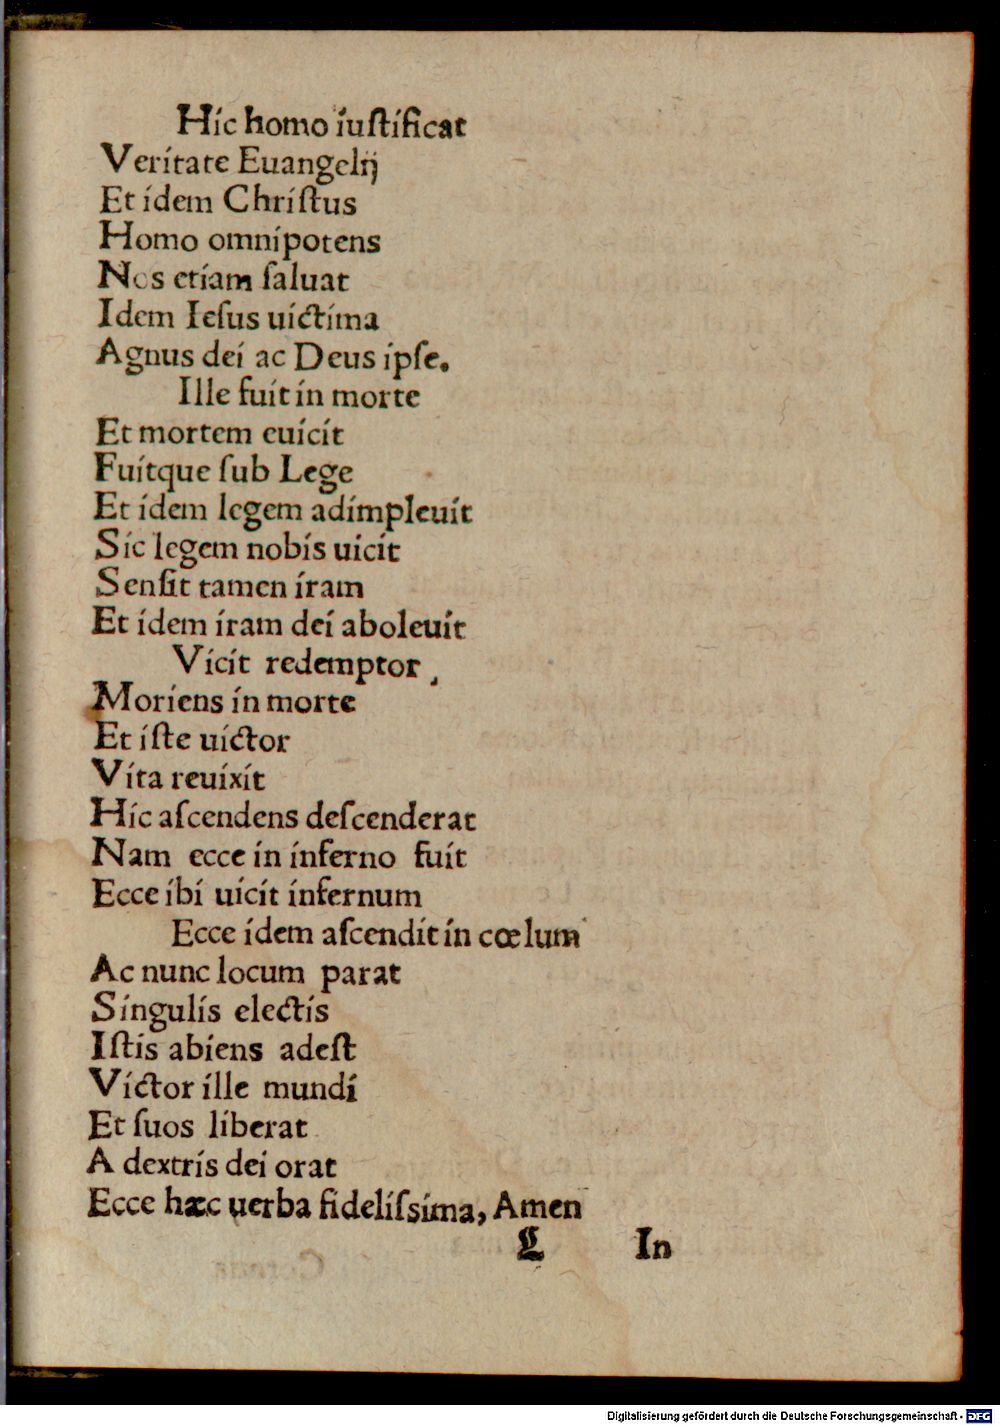 Hic homo iuſtificat
Veritate Euangelij
Et idem Chriſtus
Homo omnipotens
Nos etiam ſaluat
Idem Ieſus uictima
Agnus dei ac Deus ipſe.
Ille fuit in morte
Et mortem euicit
Fuitque ſub Lege
Et idem legem adimpleuit
Sic legem nobis uicit
Senſit tamen iram
Et idem iram dei aboleuit
Vicit redemptor
Moriens in morte
Et iſte uictor
Vita reuixit
Hic aſcendens deſcenderat
Nam ecce in inferno fuit
Ecce ibi uicit infernum
Ecce idem aſcendit in cœlum
Ac nunc locum parat
Singulis electis
Iſtis abiens adeſt
Victor ille mundi
Et ſuos liberat
A dextris dei orat
Ecce hæc uerba fideliſsima, Amen
L In
Digitalisierung gefördert durch die Deutsche Forschungsgemeinschaft - DFG